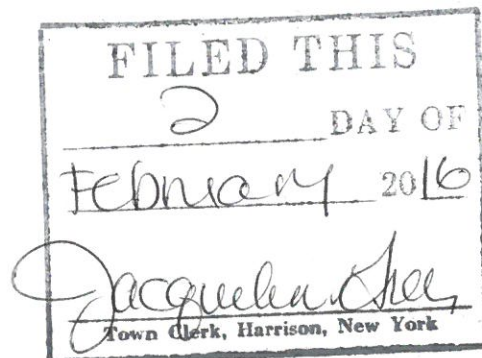 FILED THIS
2 DAY OF
February 2016
Jacquelin
Town Clerk, Harrison, New York